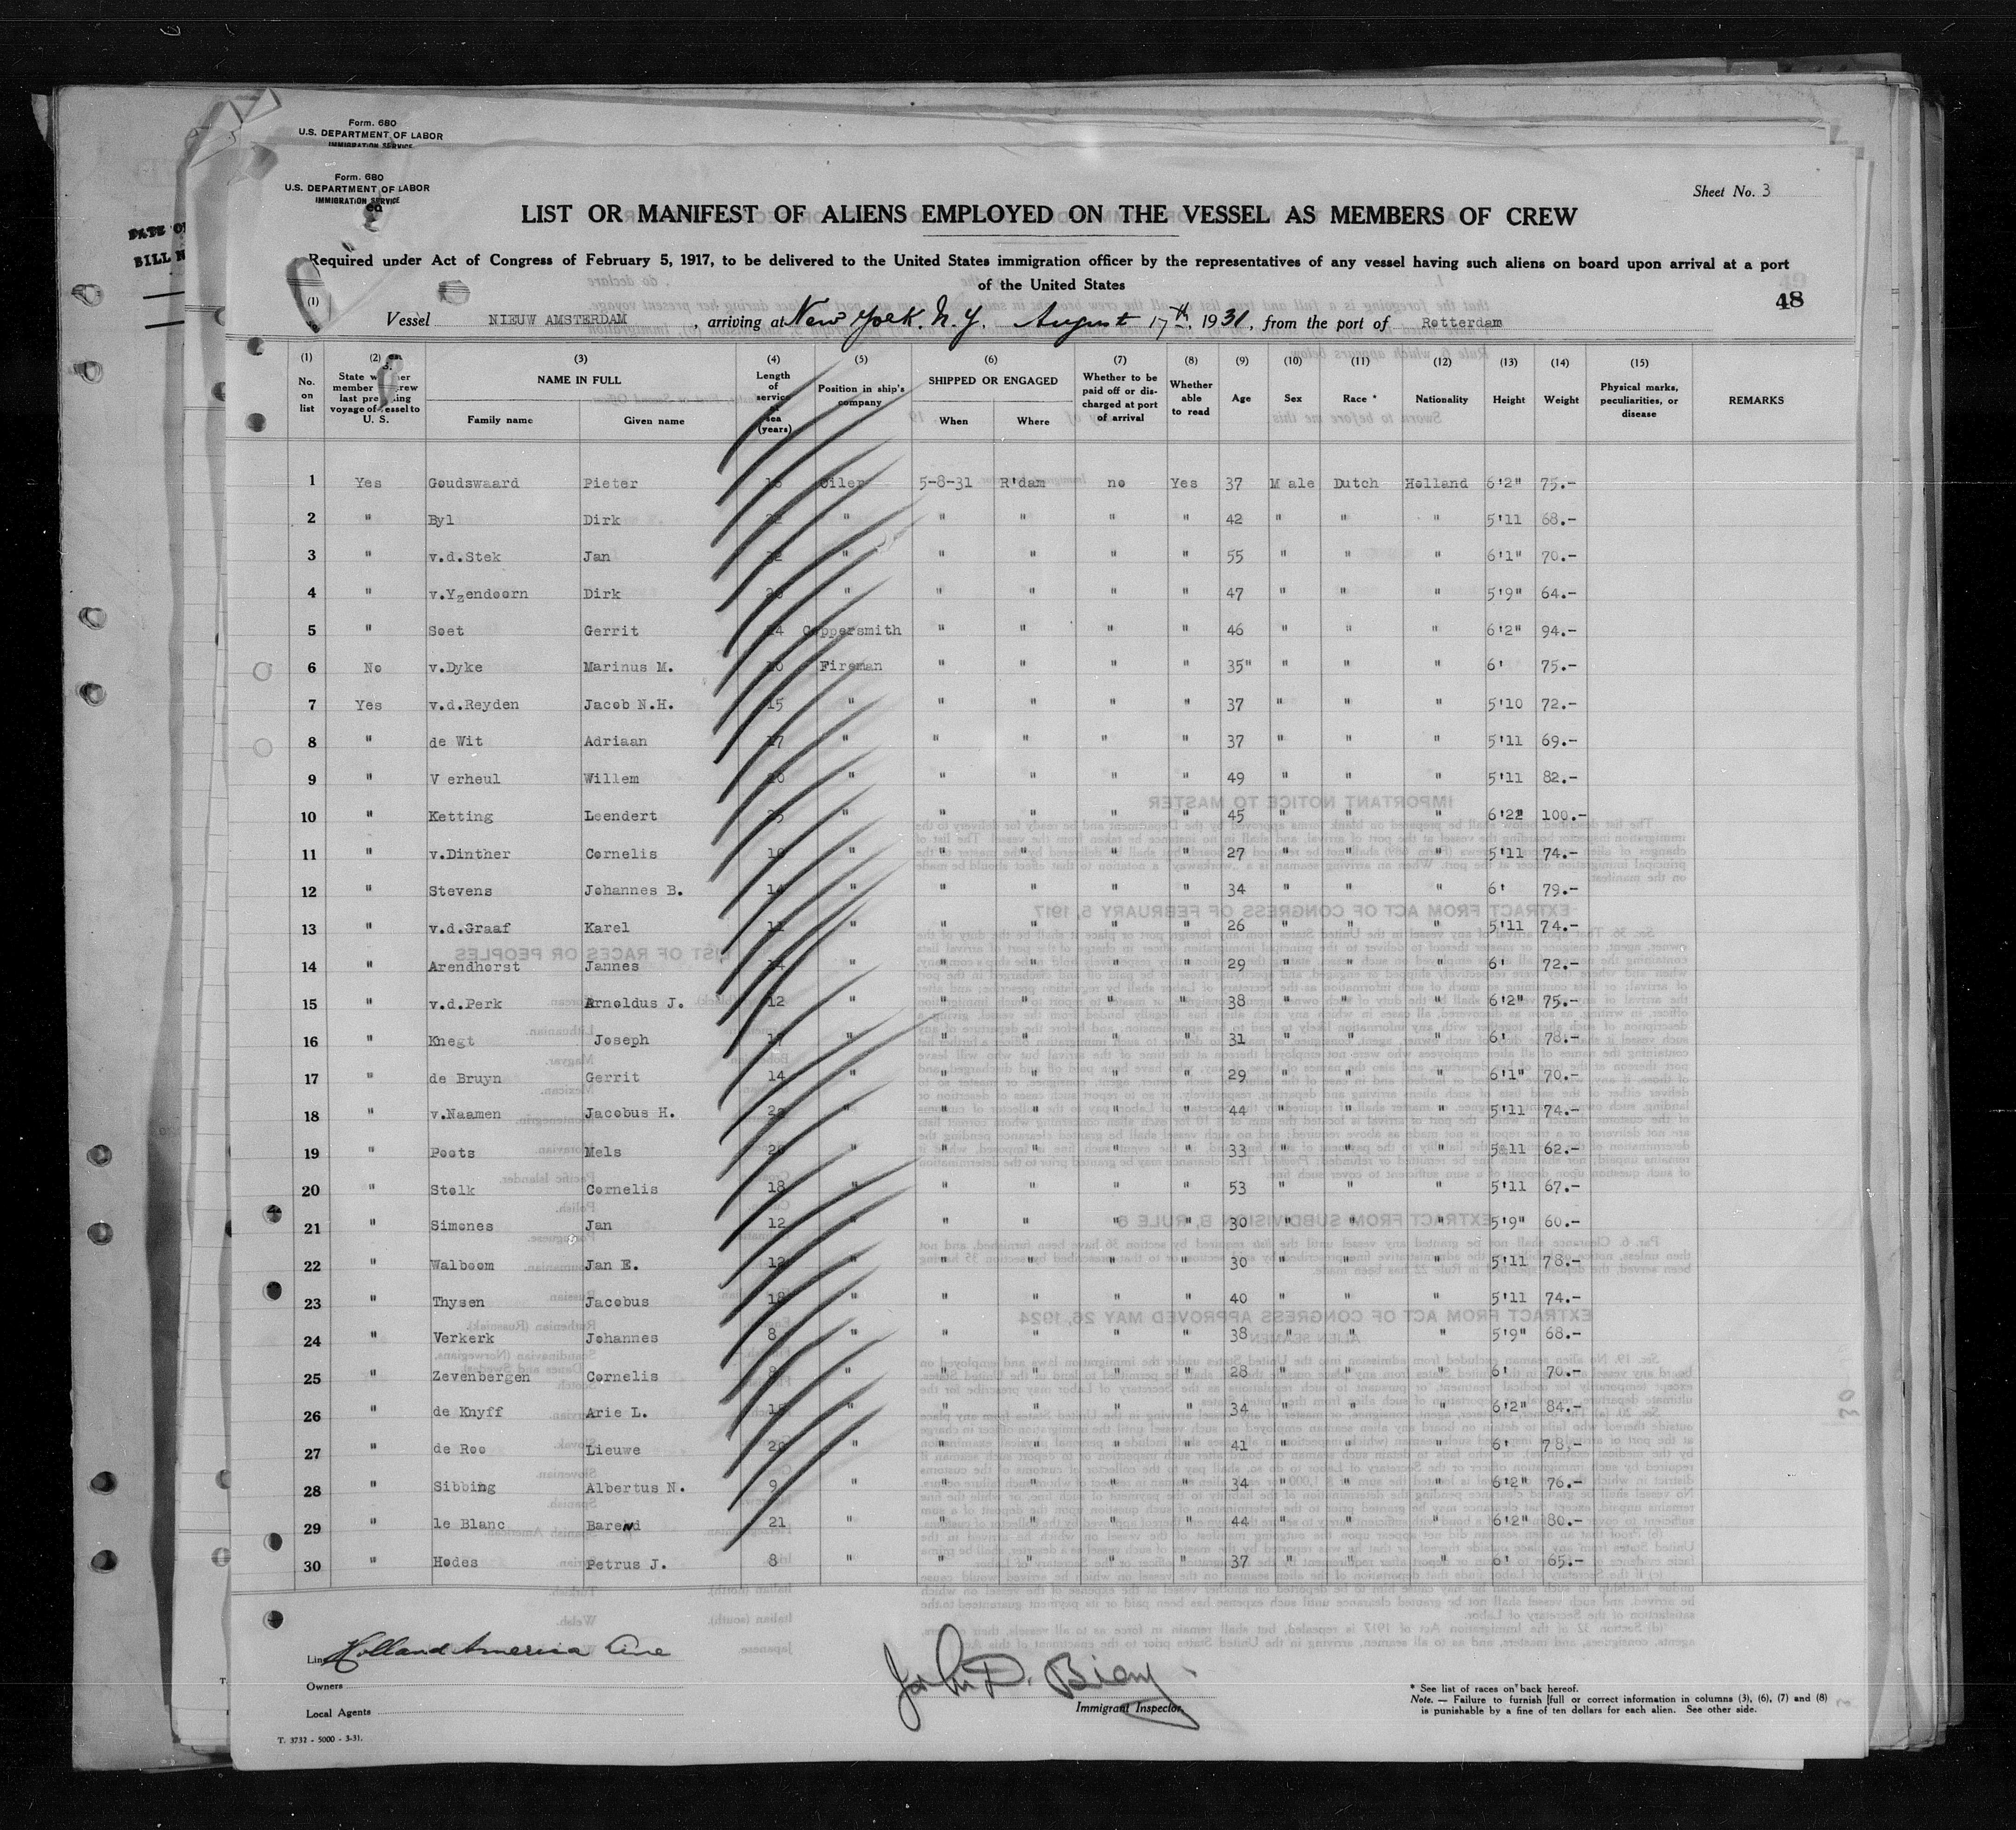 Form. 680
U.S. DEPARTMENT OF LABOR
IMMIGRATION SERVICE
Form. 680
U.S. DEPARTMENT OF LABOR
IMMIGRATION SERVICE
DATE OF
BILL N
Sheet No. 3
LIST OR MANIFEST OF ALIENS EMPLOYED ON THE VESSEL AS MEMBERS OF CREW
Required under Act of Congress of February 5, 1917, to be delivered to the United States immigration officer by the representatives of any vessel having such aliens on board upon arrival at a port
of the United States
48
Vessel NIEUW AMSTERDAM, arriving at New York. N.Y. August 17th, 1931, from the port of Rotterdam
(1) (2) (3) (4) (5) (6) (7) (8) (9) (10) (11) (12) (13) (14) (15)
No. on list State member crew last voyage of vessel to U. S. NAME IN FULL Family name Given name Length of service at sea (years) Position in ship's company SHIPPED OR ENGAGED When Where Whether to be paid off or discharged at port of arrival Whether able to read Age Sex Race * Nationality Height Weight Physical marks, peculiarities, or disease REMARKS
1 Yes Goudswaard Pieter Oiler 5-8-31 R'dam no Yes 37 M ale Dutch Holland 6'2" 75.-
2 " Byl Dirk " " " " " 42 " " " 5'11 68.-
3 " v.d.Stek Jan 32 " " " " " 55 " " " 6'1" 70.-
4 " v.Yzendoorn Dirk " " " " " 47 " " " 5'9" 64.-
5 " Soet Gerrit 24 Coppersmith " " " " 46 " " " 6'2" 94.-
6 No v.Dyke Marinus M. Fireman " " " " 35" " " " 6' 75.-
7 Yes v.d.Reyden Jacob N.H. 15 " " " " " 37 " " " 5'10 72.-
8 " de Wit Adriaan 17 " " " " " 37 " " " 5'11 69.-
9 " V erheul Willem 20 " " " " " 49 " " " 5'11 82.-
10 " Ketting Leendert 25 " " " " " 45 " " " 6'2" 100.-
11 " v.Dinther Cornelis 10 " " " " " 27 " " " 5'11 74.-
12 " Stevens Johannes B. 14 " " " " " 34 " " " 6' 79.-
13 " v.d.Graaf Karel 11 " " " " " 26 " " " 5'11 74.-
14 " Arendhorst Jannes 14 " " " " " 29 " " " 6' 72.-
15 " v.d.Perk Arnoldus J. 12 " " " " " 38 " " " 6'2" 75.-
16 " Knegt Joseph 17 " " " " " 31 " " " 6' 78.-
17 " de Bruyn Gerrit 14 " " " " " 29 " " " 6'1" 70.-
18 " v.Naamen Jacobus H. " " " " " 44 " " " 5'11 74.-
19 " Poots Mels 20 " " " " " 33 " " " 5'11 62.-
20 " Stolk Cornelis 18 " " " " " 53 " " " 5'11 67.-
21 " Simones Jan 12 " " " " " 30 " " " 5'9" 60.-
22 " Walboom Jan E. 12 " " " " " 30 " " " 5'11 78.-
23 " Thysen Jacobus 18 " " " " " 40 " " " 5'11 74.-
24 " Verkerk Johannes 8 " " " " " 38 " " " 5'9" 68.-
25 " Zevenbergen Cornelis 8 " " " " " 28 " " " 6' 70.-
26 " de Knyff Arie L. 15 " " " " " 34 " " " 6'2" 84.-
27 " de Roo Lieuwe 20 " " " " " 41 " " " 6' 78.-
28 " Sibbing Albertus N. 9 " " " " " 34 " " " 6'2" 76.-
29 " le Blanc Barend 21 " " " " " 44 " " " 6'2" 80.-
30 " Hodes Petrus J. 8 " " " " " 37 " " " 6' 65.-
Line Holland America Line
Owners
Local Agents
Immigrant Inspector.
* See list of races on back hereof.
Note. — Failure to furnish full or correct information in columns (3), (6), (7) and (8)
is punishable by a fine of ten dollars for each alien. See other side.
T. 3732 - 5000 - 3-31.